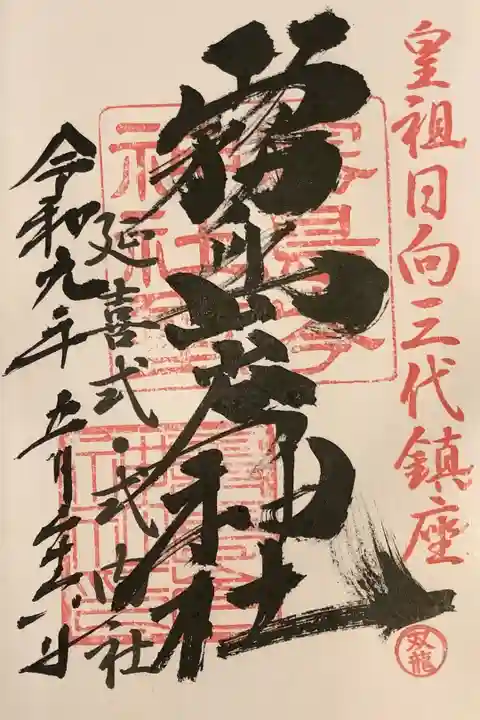 皇祖日向三代鎮座
双龍
霧島岑神社
延喜式・式内社
令和九年五月